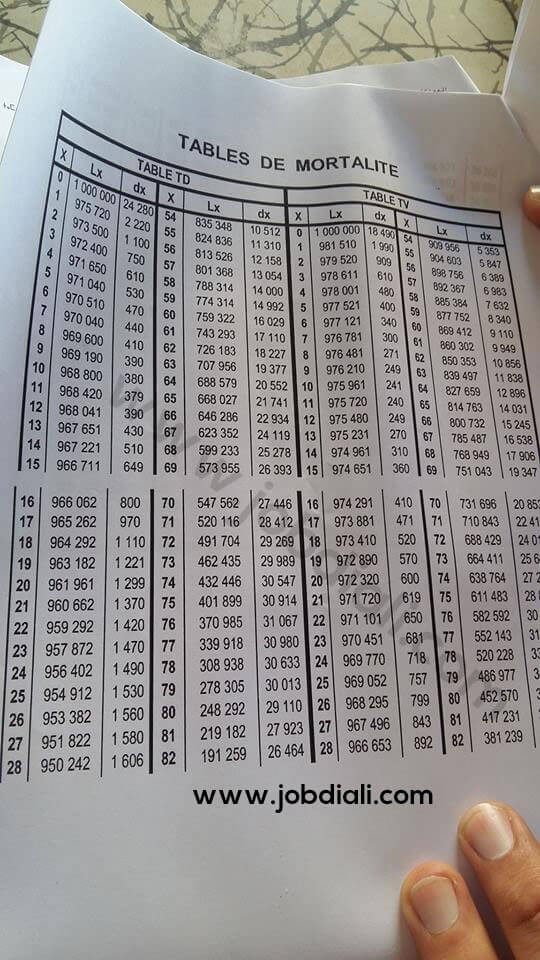 TABLES DE MORTALITE
TABLE TD TABLE TV
X Lx dx X Lx dx X Lx dx X Lx dx
0 1 000 000 24 280 54 835 348 10 512 0 1 000 000 18 490 54 909 956 5 353
1 975 720 2 220 55 824 836 11 310 1 981 510 1 990 55 904 603 5 847
2 973 500 1 100 56 813 526 12 158 2 979 520 909 56 898 756 6 389
3 972 400 750 57 801 368 13 054 3 978 611 610 57 892 367 6 983
4 971 650 610 58 788 314 14 000 4 978 001 480 58 885 384 7 632
5 971 040 530 59 774 314 14 992 5 977 521 400 59 877 752 8 340
6 970 510 470 60 759 322 16 029 6 977 121 340 60 869 412 9 110
7 970 040 440 61 743 293 17 110 7 976 781 300 61 860 302 9 949
8 969 600 410 62 726 183 18 227 8 976 481 271 62 850 353 10 856
9 969 190 390 63 707 956 19 377 9 976 210 249 63 839 497 11 838
10 968 800 380 64 688 579 20 552 10 975 961 241 64 827 659 12 896
11 968 420 379 65 668 027 21 741 11 975 720 240 65 814 763 14 031
12 968 041 390 66 646 286 22 934 12 975 480 249 66 800 732 15 245
13 967 651 430 623 352 24 119 13 975 231 270 67 785 487 16 538
14 967 221 510 68 599 233 25 278 14 974 961 310 68 768 949 17 906
15 966 711 649 69 573 955 26 393 15 974 651 360 69 751 043 19 347
16 966 062 800 70 547 562 27 446 16 974 291 410 70 731 696 20 853
17 965 262 970 71 520 116 28 412 17 973 881 471 71 710 843 22 41
18 964 292 1 110 72 491 704 29 269 18 973 410 520 72 688 429 24 01
19 963 182 1 221 73 462 435 29 989 19 972 890 570 73 664 411 25 6
20 961 961 1 299 74 432 446 30 547 20 972 320 600 74 638 764 27 2
21 960 662 1 370 75 401 899 30 914 21 971 720 619 75 611 483 28 8
22 959 292 1 420 76 370 985 31 067 22 971 101 650 76 582 592 30
23 957 872 1 470 77 339 918 30 980 23 970 451 681 77 552 143 31
24 956 402 1 490 78 308 938 30 633 24 969 770 718 78 520 228 33
25 954 912 1 530 79 278 305 30 013 25 969 052 757 79 486 977 3
26 953 382 1 560 80 248 292 29 110 26 968 295 799 80 452 570 3
27 951 822 1 580 81 219 182 27 923 27 967 496 843 81 417 231
28 950 242 1 606 82 191 259 26 464 28 966 653 892 82 381 239
www.jobdiali.com
www.jobdiali.com